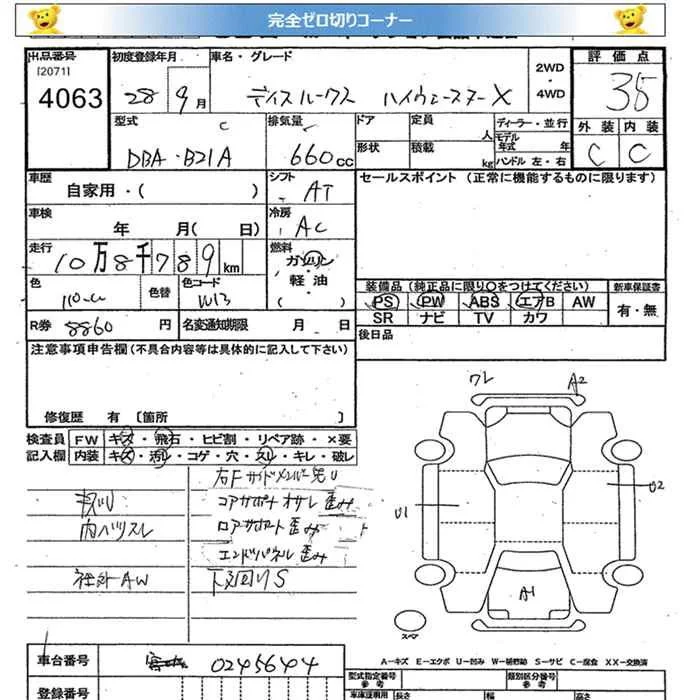 完全ゼロ切りコーナー
出品番号 初度登録年月 車名・グレード 2WD ・ 4WD 評価点
[2071]
4063 28 9月 デイズルークス ハイウェースターX 35
型式 排気量 ドア 定員 人 ディーラー・並行 外装 内装
C モデル年式 年
DBA・B21A 660cc 形状 積載 kg ハンドル 左・右 C C
車歴 シフト セールスポイント (正常に機能するものに限ります)
自家用・( ) AT
車検 冷房
年 月( 日) AC
走行 燃料
10万8千789km ガソリン・
軽油
・( )
色 色替 色コード 装備品 (純正品に限り〇をつけてください) 新車保証書
W13 PS PW ABS エアB AW 有・無
SR ナビ TV カワ
R券 8860円 名変通知期限 月 日 後日品
注意事項申告欄(不具合内容等は具体的に記入して下さい)
ワレ A2
修復歴 有 [箇所 ]
検査員 FW キズ・飛石・ヒビ割・リペア跡・×要
記入欄 内装 キズ・汚れ・コゲ・穴・スリ・キレ・破レ
右Fサイドメンバー
コアサポート オサレ 歪み
内ハリスレ ロアサポート 歪み
エンドパネル 歪み
社外AW 下廻りS
U1 U2
A1
スペア
A-キズ E-エクボ U-凹み W-補修跡 S-サビ C-腐食 XX-交換済
車台番号 0245644
型式指定番号 参考 類別区分番号 参考
登録番号 車庫証明用 長さ 幅 高さ